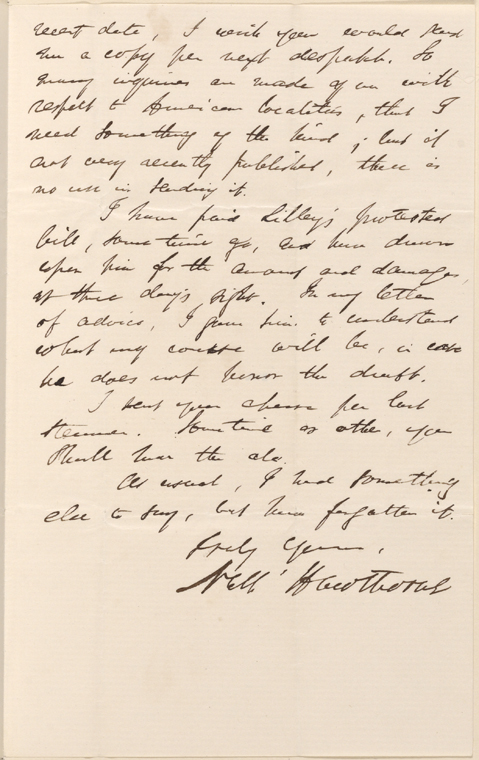 recent date, I wish you would send
me a copy per next despatch. So
many inquiries are made of me with
respect to American localities, that I
need something of the kind; but if
not very recently published, there is
no use in sending it.
I have paid Lilley's protested
bill, some time ago, and have drawn
upon him for the amount and damages,
at three days sight. In my letter
of advice, I gave him to understand
what my course will be, in case
he does not honor the draft.
I sent your cheese per last
steamer. Sometime or other, you
shall have the ale.
As usual, I had something
else to say, but have forgotten it.
Truly Yours,
Nath' Hawthorne